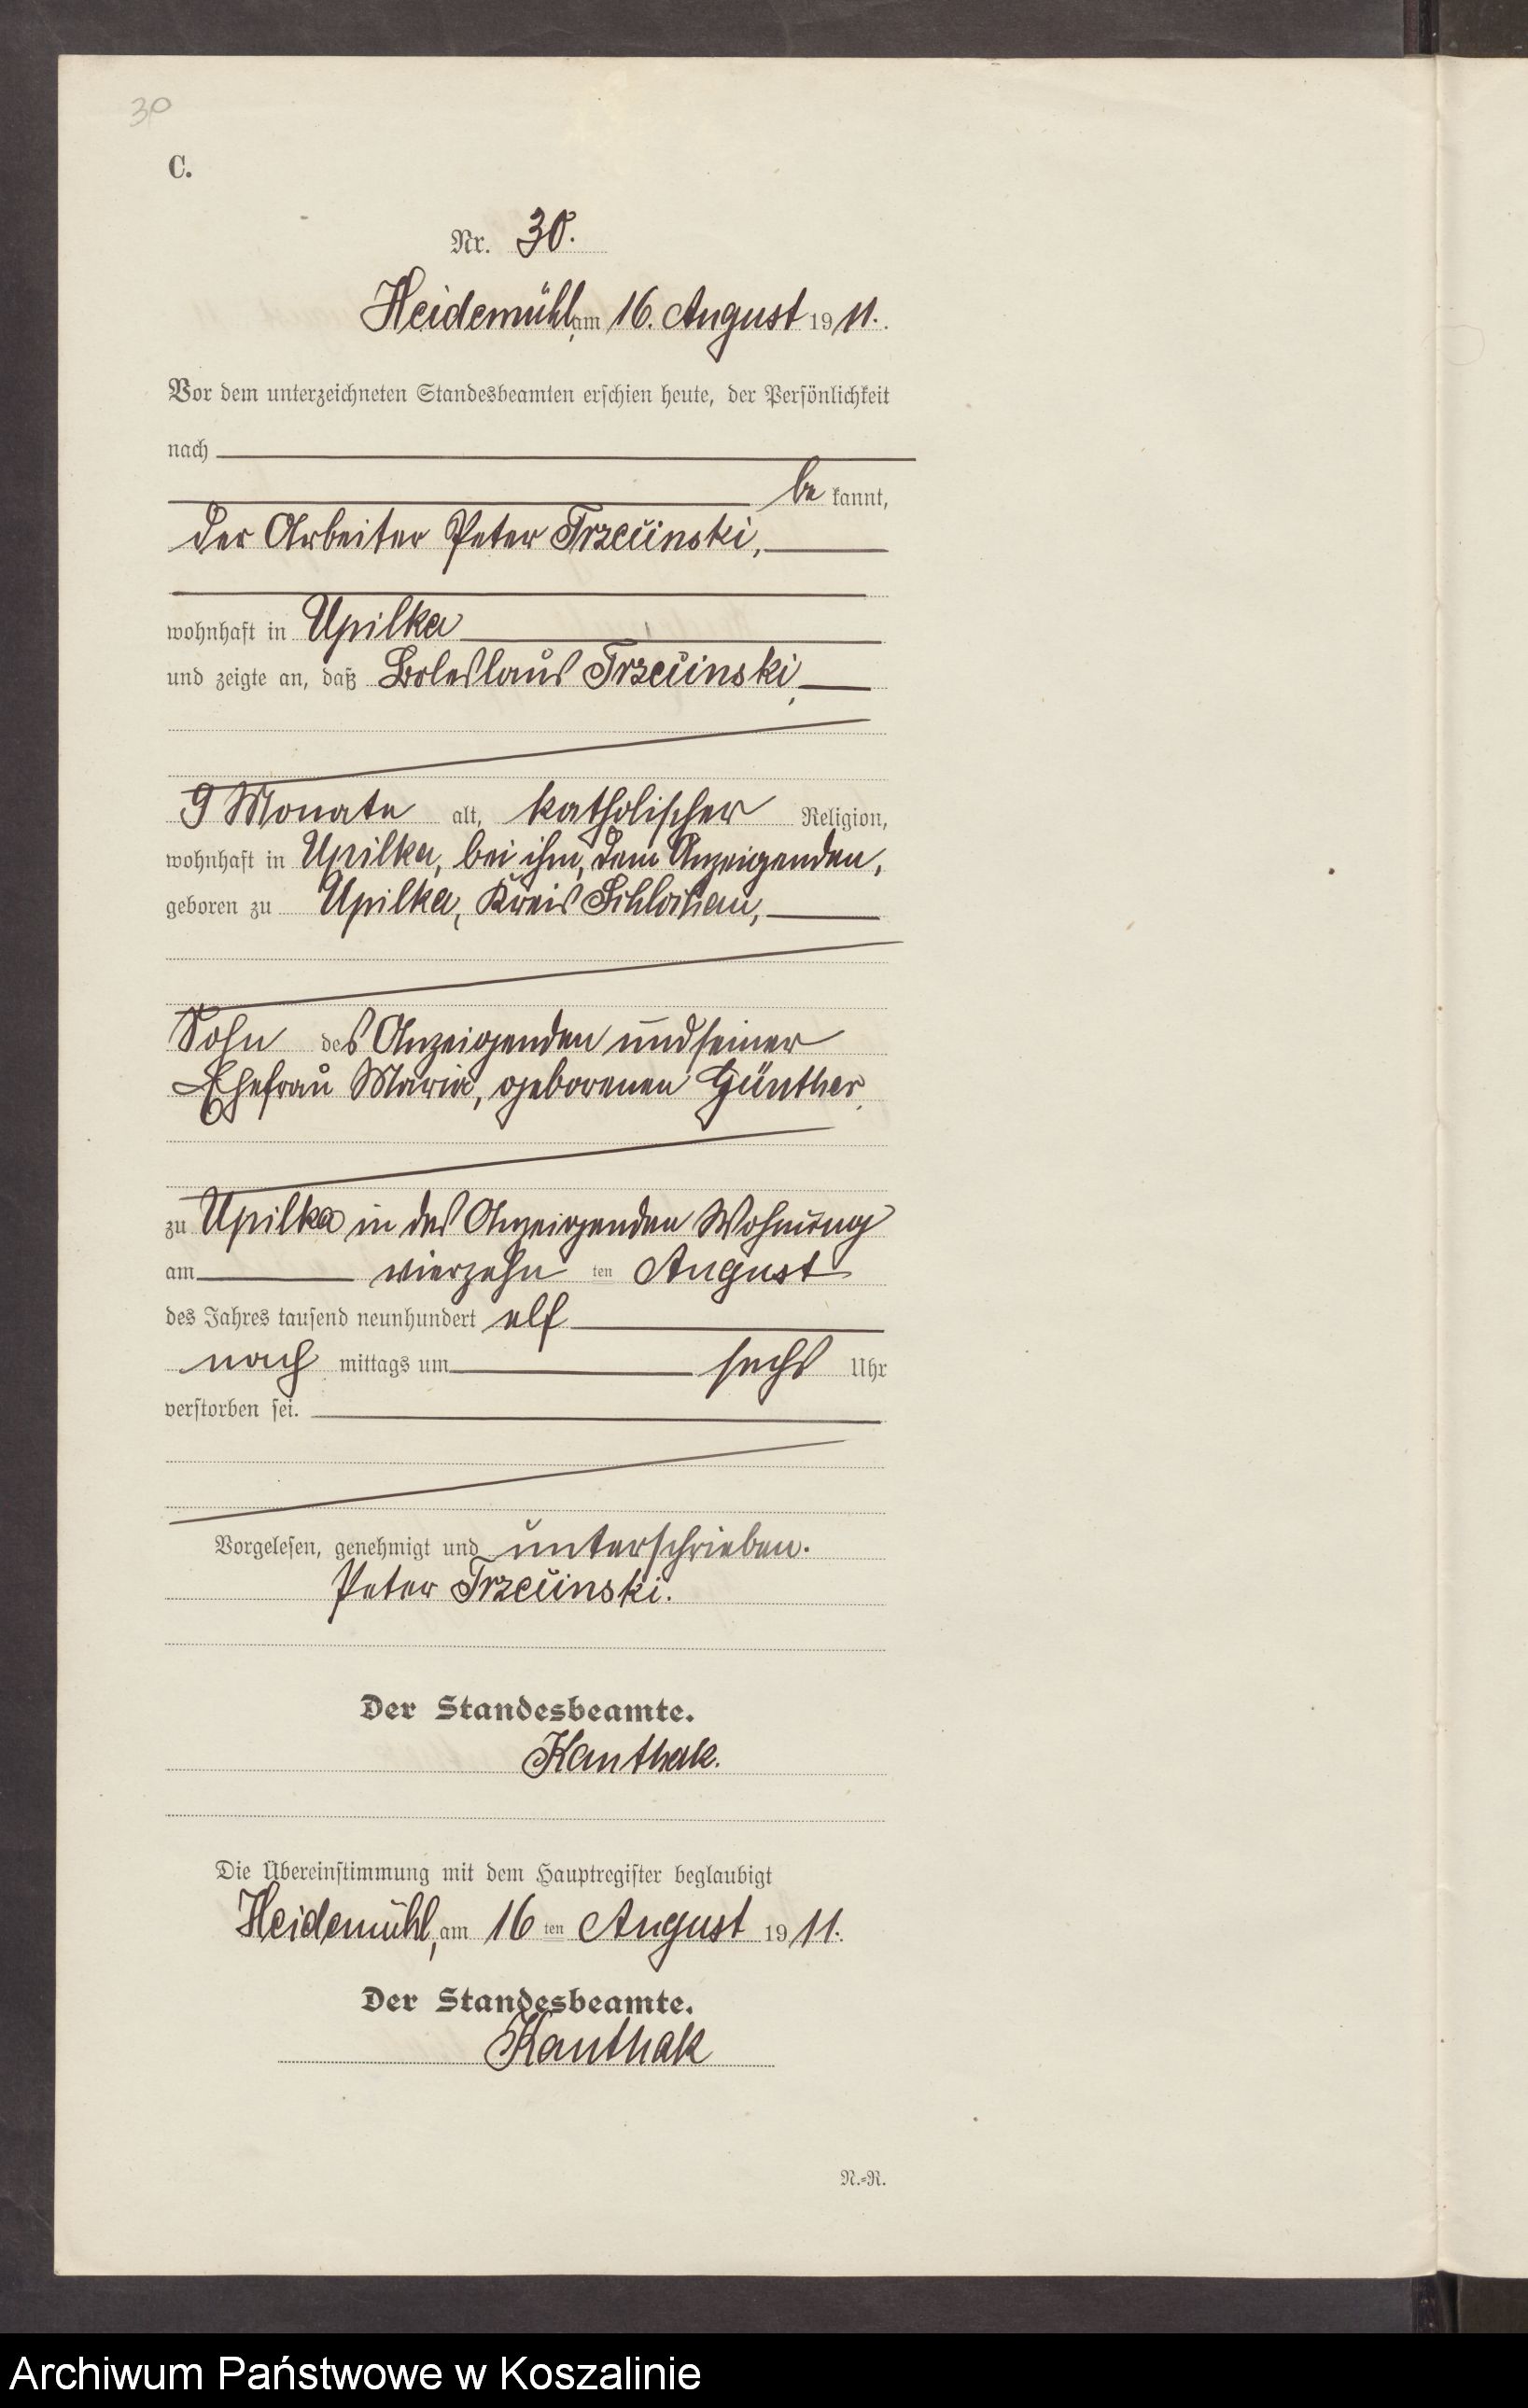 30
C.
Nr. 30.
Heidemühl, am 16. August 1911.
Vor dem unterzeichneten Standesbeamten erschien heute, der Persönlichkeit
nach
be kannt,
der Arbeiter Peter Trzcinski,
wohnhaft in Upilka
und zeigte an, daß Boleslaus Trzcinski,
9 Monate alt, katholischer Religion,
wohnhaft in Upilka, bei ihm, dem Anzeigenden,
geboren zu Upilka, Kreis Schlochau,
Sohn des Anzeigenden und seiner
Ehefrau Maria, geborenen Günther,
zu Upilka in des Anzeigenden Wohnung
am vierzehn ten August
des Jahres tausend neunhundert elf
nach mittags um sechs Uhr
verstorben sei.
Vorgelesen, genehmigt und unterschrieben.
Peter Trzcinski.
Der Standesbeamte.
Kanthak.
Die Übereinstimmung mit dem Hauptregister beglaubigt
Heidemühl, am 16 ten August 1911.
Der Standesbeamte.
Kanthak
N.=R.
Archiwum Państwowe w Koszalinie